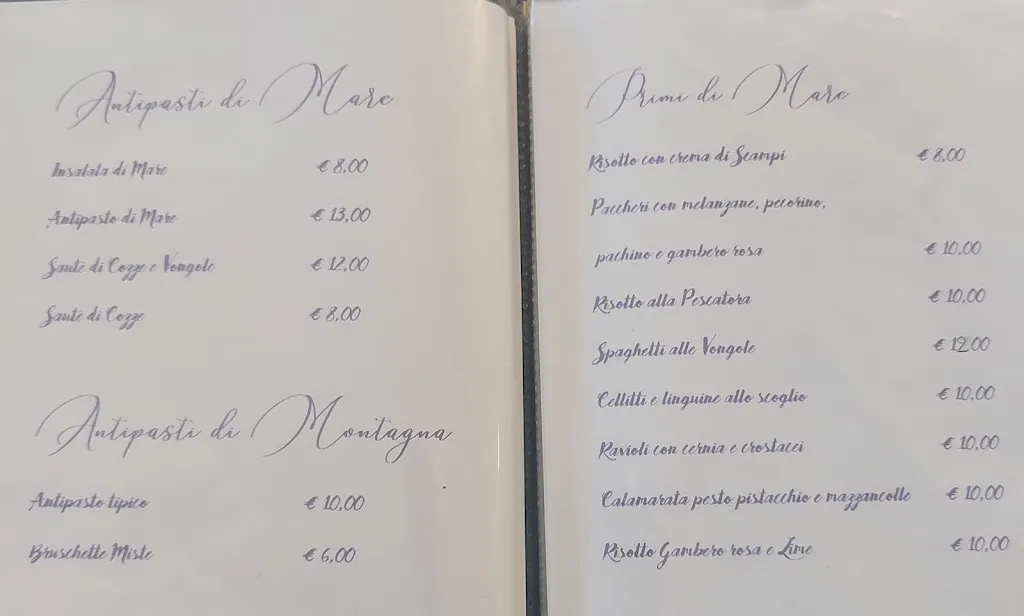 Antipasti di Mare
Insalata di Mare € 8,00
Antipasto di Mare € 13,00
Sautè di Cozze e Vongole € 12,00
Sautè di Cozze € 8,00
Antipasti di Montagna
Antipasto tipico € 10,00
Bruschette Miste € 6,00
Primi di Mare
Risotto con crema di Scampi € 8,00
Paccheri con melanzane, pecorino,
pachino e gambero rosa € 10,00
Risotto alla Pescatora € 10,00
Spaghetti alle Vongole € 12,00
Cellitti e linguine allo scoglio € 10,00
Ravioli con cernia e crostacei € 10,00
Calamarata pesto pistacchio e mazzancolle € 10,00
Risotto Gambero rosa e Lime € 10,00